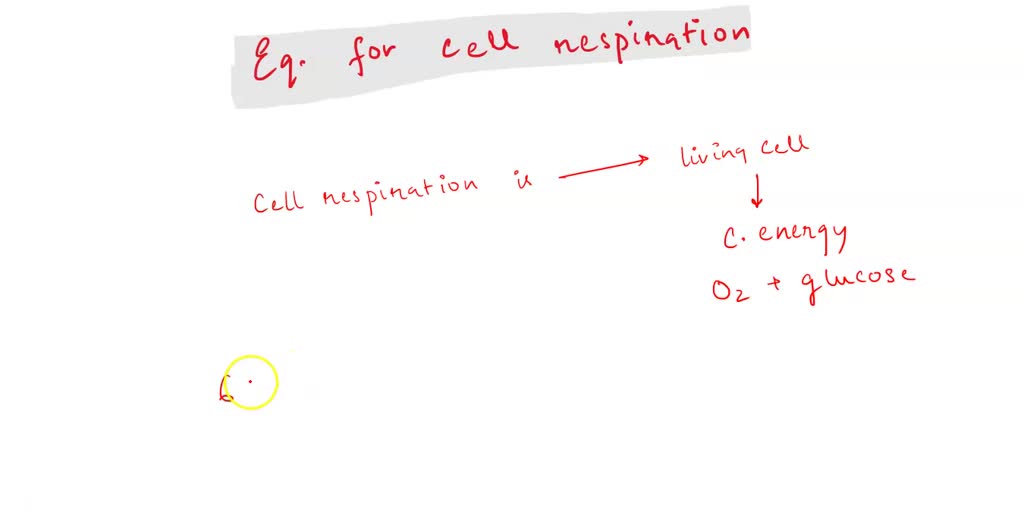 Eq. for cell respiration
Cell respiration is → living cell
↓
C. energy
O2 + glucose
6